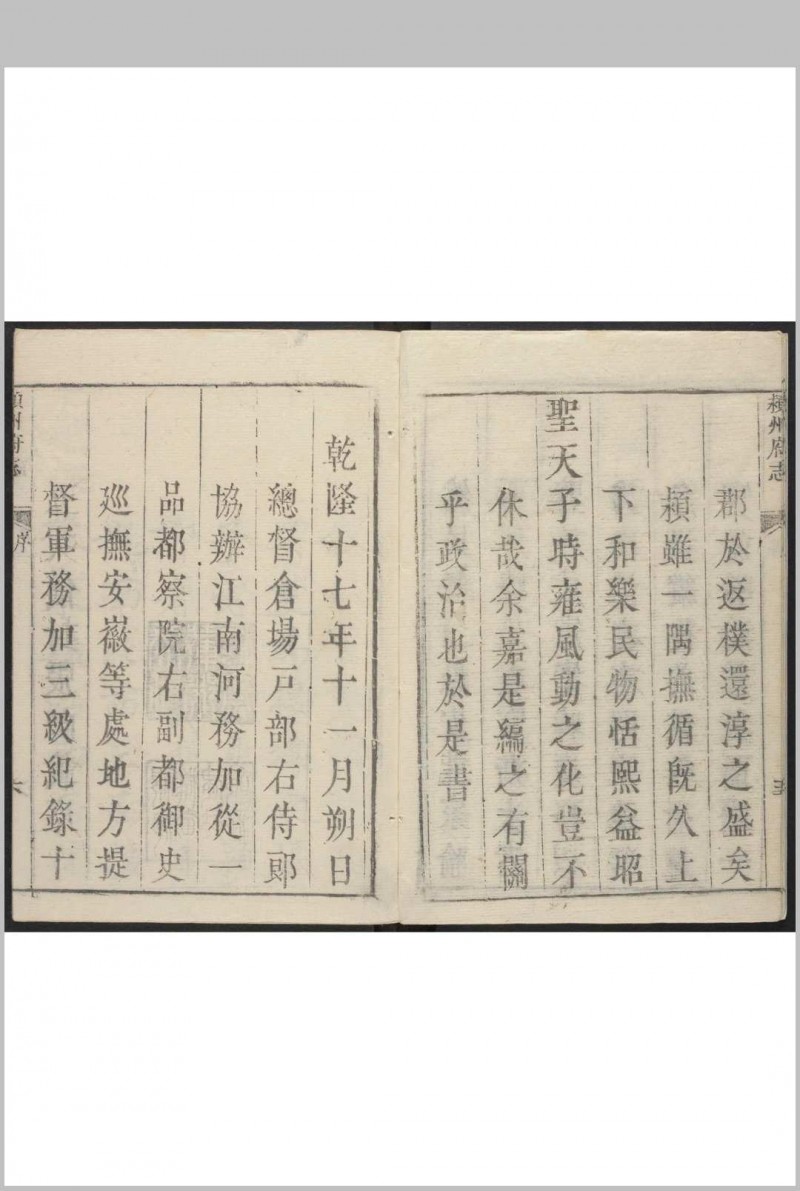 潁州府志
五
郡於返樸還淳之盛矣
潁雖一隅撫循既久上
下和樂民物恬熙益昭
聖天子時雍風動之化豈不
休哉余嘉是編之有關
乎政治也於是書
乾隆十七年十一月朔日
總督倉場戸部右侍郎
協辦江南河務加從一
品都察院右副都御史
廵撫安徽等處地方提
督軍務加三級紀錄十
潁州府志
序
六